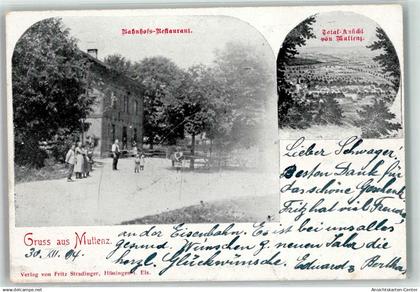 Bahnhofs-Restaurant.
Total-Ansicht
von Muttenz.
Lieber Schwager!
Besten Dank für
das schöne Geschenk
Fritz hat viel Freude
Gruss aus Muttenz.
an der Eisenbahn. Es ist bei uns alles
30. XII. 04
gesund. Wünschen z. neuen Jahr die
herzl. Glückwünsche. Eduard & Bertha
Verlag von Fritz Stradinger, Hüningen i. Els.